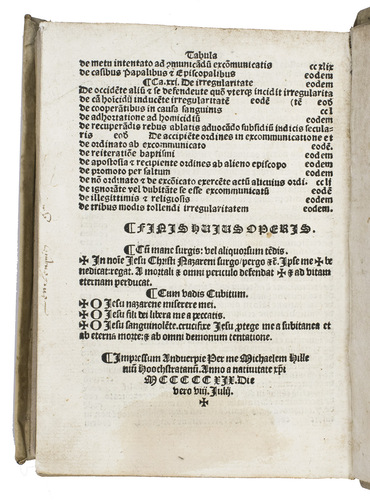 Tabula
de metu intentato ad ꝯmunicādū excōmunicatis cc xlix
de casibus Papalibus ⁊ Episcopalibus eodem
¶ Ca. xxi. De irregularitate eodem
De occidēte aliū ⁊ se defendente quo vterqꝫ incidit irregularita
de cā hoicidū inducēte irregularitatē eodē (tē eod
de cooperātibus in causa sanguinis cc l
de adhortatione ad homicidiū eodem
de recuperādis rebus ablatis aduocādo subsidiū iudicis secula-
ris eod De accipiēte ordines in excommunicatione et
de ordinato ab excommunicato eodē. (
de reiteratiōe baptismi eodem
de apostasia ⁊ recipiente ordines ab alieno episcopo eodem
de promoto per saltum eodem
de nō ordinato ⁊ de excōicato exercēte actū alicuius ordi. cc li
de ignorāte vel dubitāte se esse excommunicatū eodē
de illegittimis ⁊ religiosis eodem
de tribus modis tollendi irregularitatem eodem.
¶ FINIS HUIUS OPERIS.
¶ Cū mane surgis: vel aliquorsum tēdis.
✠ In noīe Jesu Christi Nazareni surgo/ pergo ⁊c̄. Ipse me ✠ be
nedicat: regat. A mortali ⁊ omni periculo defendat ✠ ⁊ ad vitam
eternam perducat.
¶ Cum vadis Cubitum.
✠ O Jesu nazarene miserere mei.
✠ O Jesu fili dei libera me a peccatis.
✠ O Jesu sanguinolēte. crucifixe Jesu, ꝓtege me a subitanea et
ab eterna morte: ⁊ ab omni demonum tentatione.
¶ Impressum Anduerpie Per me Michaelem Hille
niū Hoochstratanū. Anno a natiuitate xp̄i
MCCCCCXIX. Die
vero viij. Julij.
✠